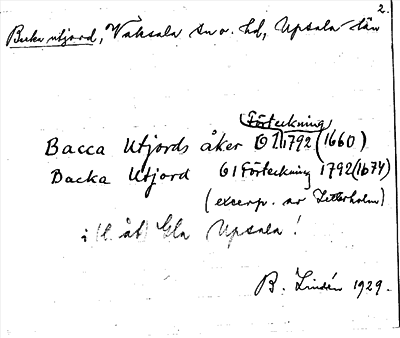 2.
Backa utjord, Vaksala sn o. hd, Upsala län
Förteckning
Bacca Utjords åker O1 1792 (1660)
Backa Utjord O1 Förteckning 1792 (1674)
(excerp. av Zetterholm)
i (l. åt) Gla Upsala!
B. Lindén 1929.